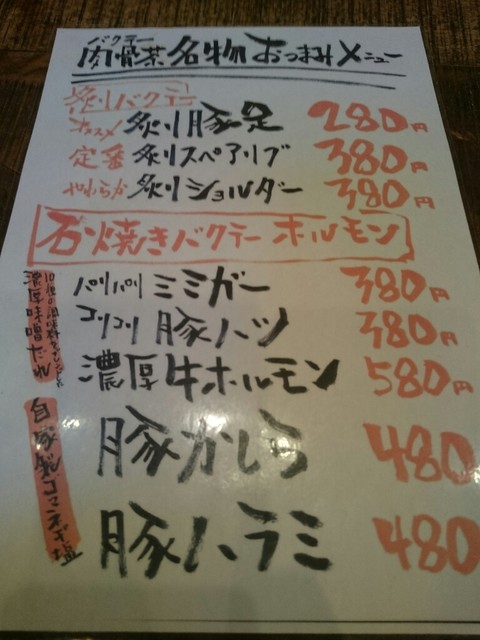 バクテー
肉骨茶 名物 おつまみメニュー
炙りバクテー
オススメ 炙り豚足 280円
定番 炙りスペアリブ 380円
やわらか 炙りショルダー 380円
石焼きバクテー ホルモン
濃厚味噌だれ
パリパリ ミミガー 380円
コリコリ 豚ハツ 380円
濃厚 牛ホルモン 580円
自家製ゴマネギ塩
豚かしら 480円
豚ハラミ 480円